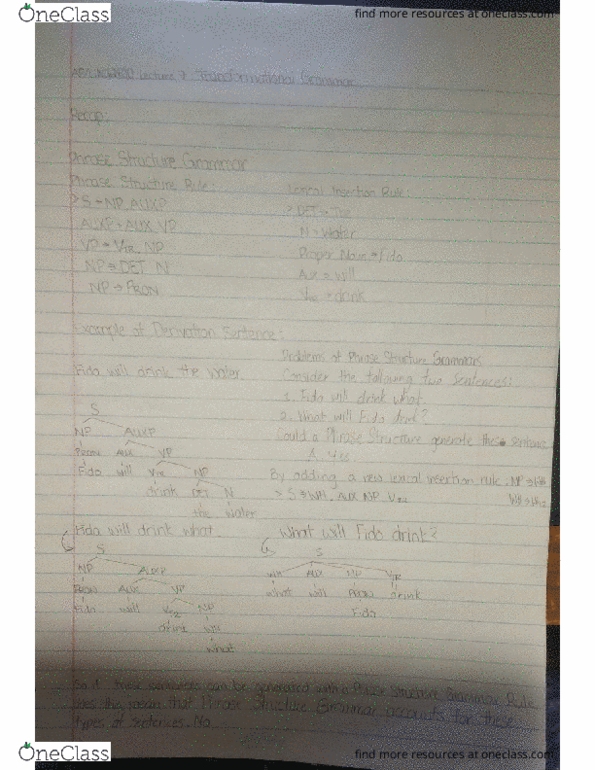 OneClass
find more resources at oneclass.com
Lecture 7 Transformational Grammar
Recap:
Phrase Structure Grammar
Phrase Structure Rule:
> S → NP AUXP
AUXP → AUX VP
VP → VTR NP
NP → DET N
NP → PRON
Lexical Insertion Rule:
> DET → The
N → Water
Proper Noun → Fido
Aux → Will
VTR → drink
Example of Derivation Sentence:
Fido will drink the water
S
NP AUXP
AUX VP
Fido will VTR NP
drink DET N
the water
Problems of Phrase Structure Grammars
Consider the following two sentences:
1. Fido will drink what.
2. What will Fido drink?
Could a Phrase Structure generate these sentences
Yes
By adding a new lexical insertion rule NP →
> S → WH AUX NP VTR
Fido will drink what
S
NP AUXP
PRON AUX VP
Fido will NP
drink WH
what
What will Fido drink?
S
WH AUX NP
what will PRON drink
Fido
So if these sentences can be generated with a Phrase Structure Grammar Rule
does this mean that Phrase Structure Grammar accounts for these
types of sentences. No
OneClass
find more resources at oneclass.com